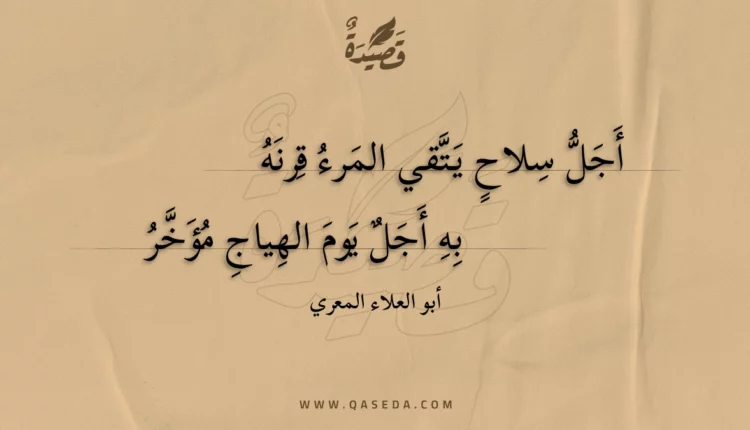 قَصِيدَةٌ
أَجَلُّ سِلاحٍ يَتَّقي المَرءُ قِرنَهُ
بِهِ أَجَلٌ يَومَ الهِياجِ مُؤَخَّرُ
أبو العلاء المعري
WWW.QASEDA.COM